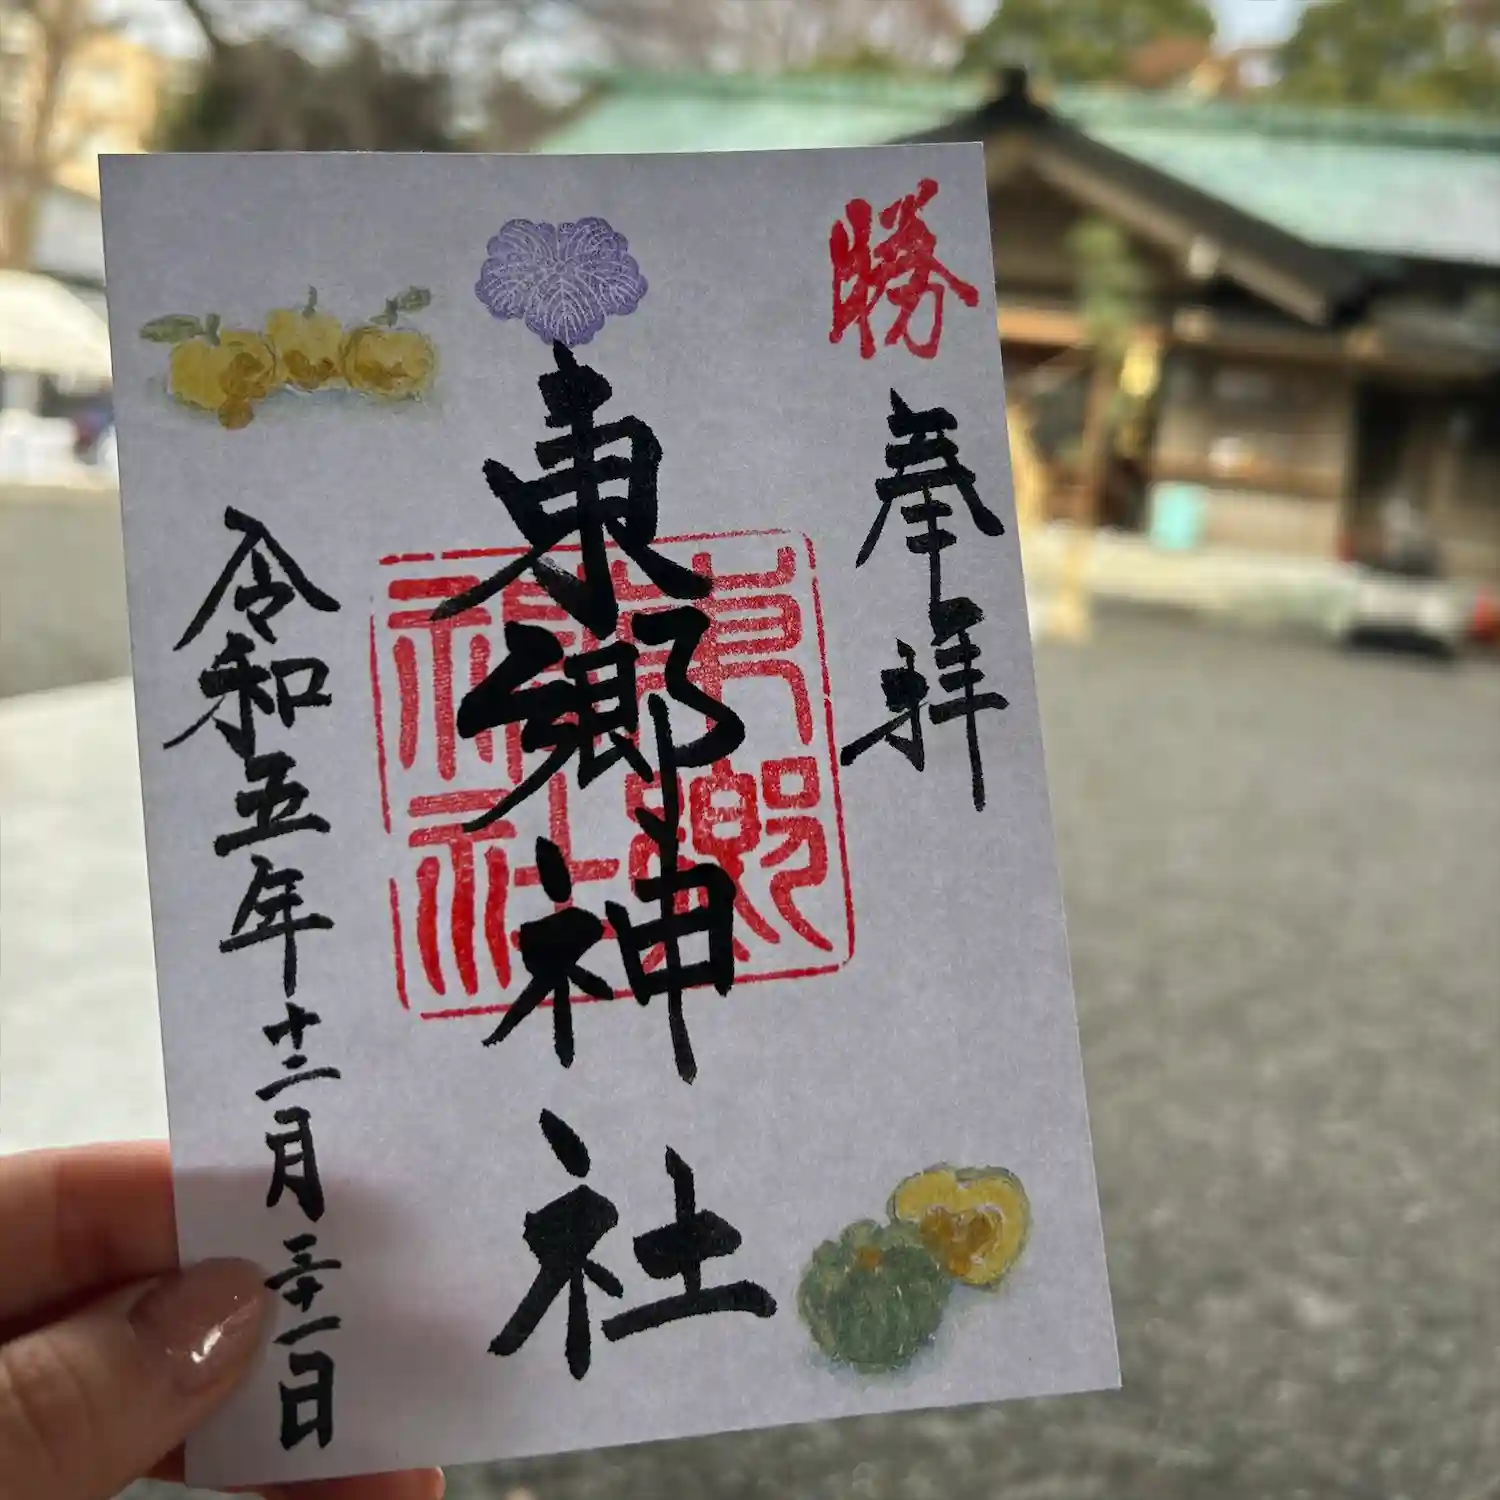 勝
奉拝
東郷神社
東郷神社
令和五年十二月三十一日